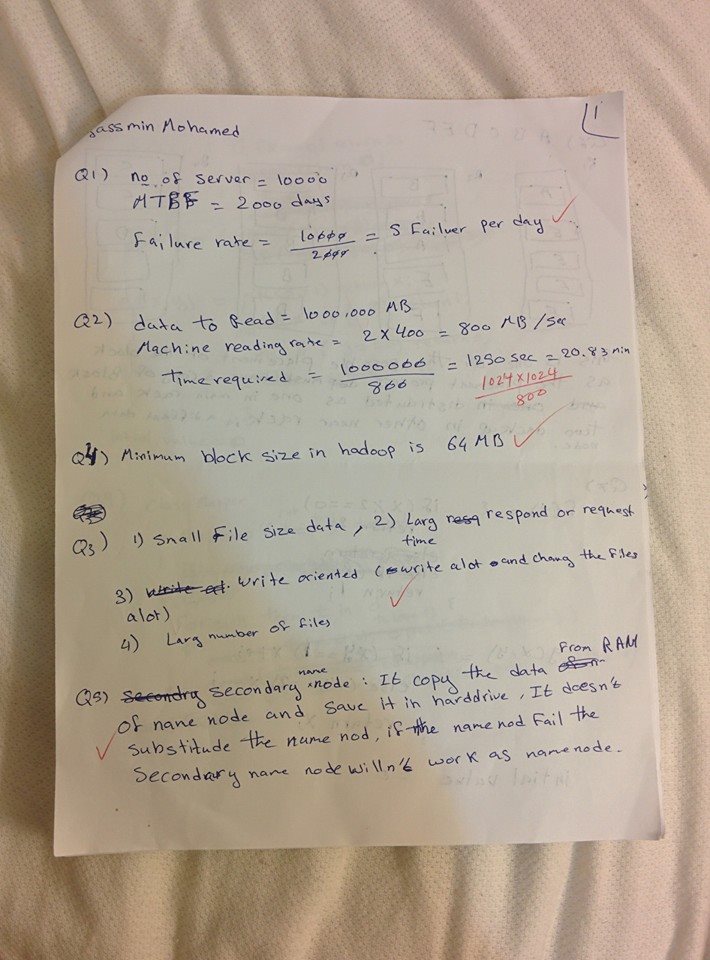 Jassmin Mohamed
1
Q1) no of server = 10000
MTBF = 2000 days
Failure rate = 10000 / 2000 = 5 Failuer per day
Q2) data to Read = 1000,000 MB
Machine reading rate = 2 x 400 = 800 MB / Sec
Time required = 1000000 / 800 = 1250 sec = 20.83 min
1024 x 1024 / 800
Q4) Minimum block size in hadoop is 64 MB
Q3) 1) Small File size data, 2) Larg respond or request
time
3) Write oriented (write alot and chang the files
alot)
4) Larg number of files
Q5) Secondary name node : It copy the data From RAM
of name node and save it in harddrive, It doesn't
substitude the name nod, if the name nod Fail the
Secondary name node willn't work as namenode.